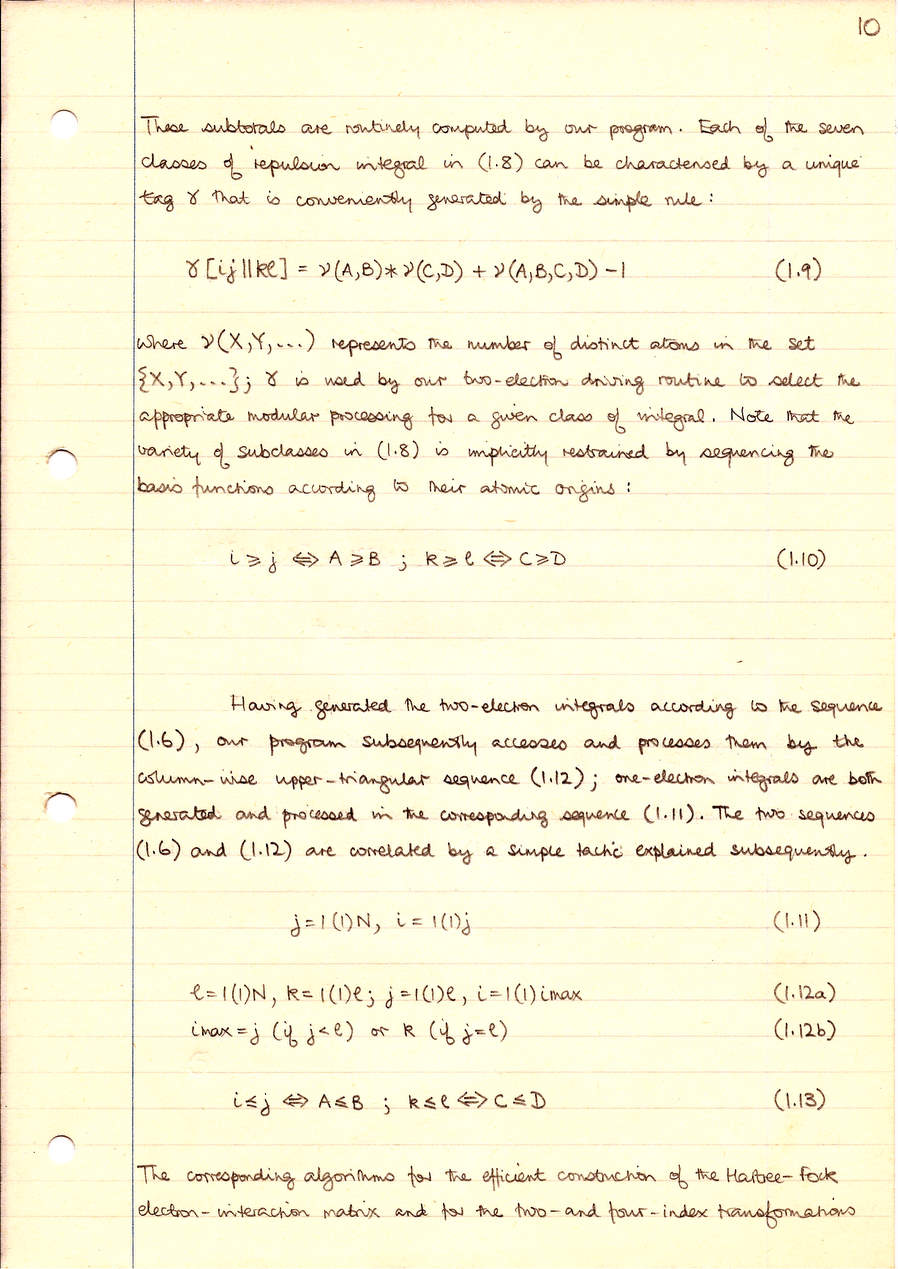 10
These subtotals are routinely computed by our program. Each of the seven
classes of repulsion integral in (1.8) can be characterised by a unique
tag γ that is conveniently generated by the simple rule:
γ[ij||kℓ] = ν(A,B)*ν(C,D) + ν(A,B,C,D) -1 (1.9)
where ν(X,Y,...) represents the number of distinct atoms in the set
{X,Y,...}; γ is used by our two-electron driving routine to select the
appropriate modular processing for a given class of integral. Note that the
variety of subclasses in (1.8) is implicitly restrained by sequencing the
basis functions according to their atomic origins:
i⩾j ⇔ A⩾B ; k⩾ℓ ⇔ C⩾D (1.10)
Having generated the two-electron integrals according to the sequence
(1.6), our program subsequently accesses and processes them by the
column-wise upper-triangular sequence (1.12); one-electron integrals are both
generated and processed in the corresponding sequence (1.11). The two sequences
(1.6) and (1.12) are correlated by a simple tactic explained subsequently.
j=1(1)N, i=1(1)j (1.11)
ℓ=1(1)N, k=1(1)ℓ; j=1(1)ℓ, i=1(1)imax (1.12a)
imax=j (if j<ℓ) or k (if j=ℓ) (1.12b)
i⩽j ⇔ A⩽B ; k⩽ℓ ⇔ C⩽D (1.13)
The corresponding algorithms for the efficient construction of the Hartree-Fock
electron-interaction matrix and for the two-and four-index transformations